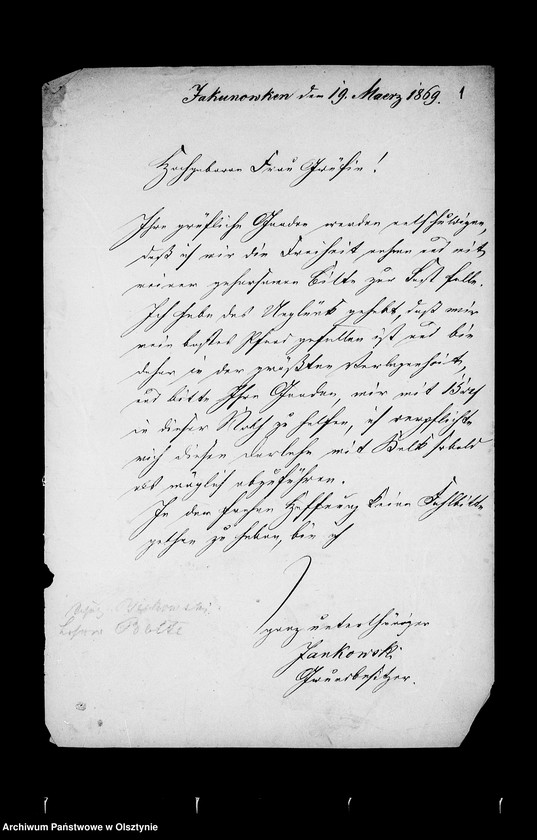 Jakunowken den 19. Maerz 1869.
1
Hochgeborene Frau Gräfin!
Ihro gräfliche Gnaden werden entschuldigen,
daß ich mir die Freiheit nehme und mit
meiner gehorsamen Bitte zur Last falle.
Ich habe das Unglück gehabt, daß mir
mein bestes Pferd gefallen ist und bin
daher in der größten Verlegenheit,
und bitte Ihro Gnaden, mir mit
in dieser Noth zu helfen, ich verpflichte
mich diesen Darlehn mit Kalk sobald
als möglich abzuführen.
In der frohen Hoffnung keine Fehlbitte
gethan zu haben, bin ich
ganz unterthäniger
Jankowski
Grundbesitzer.
Archiwum Państwowe w Olsztynie